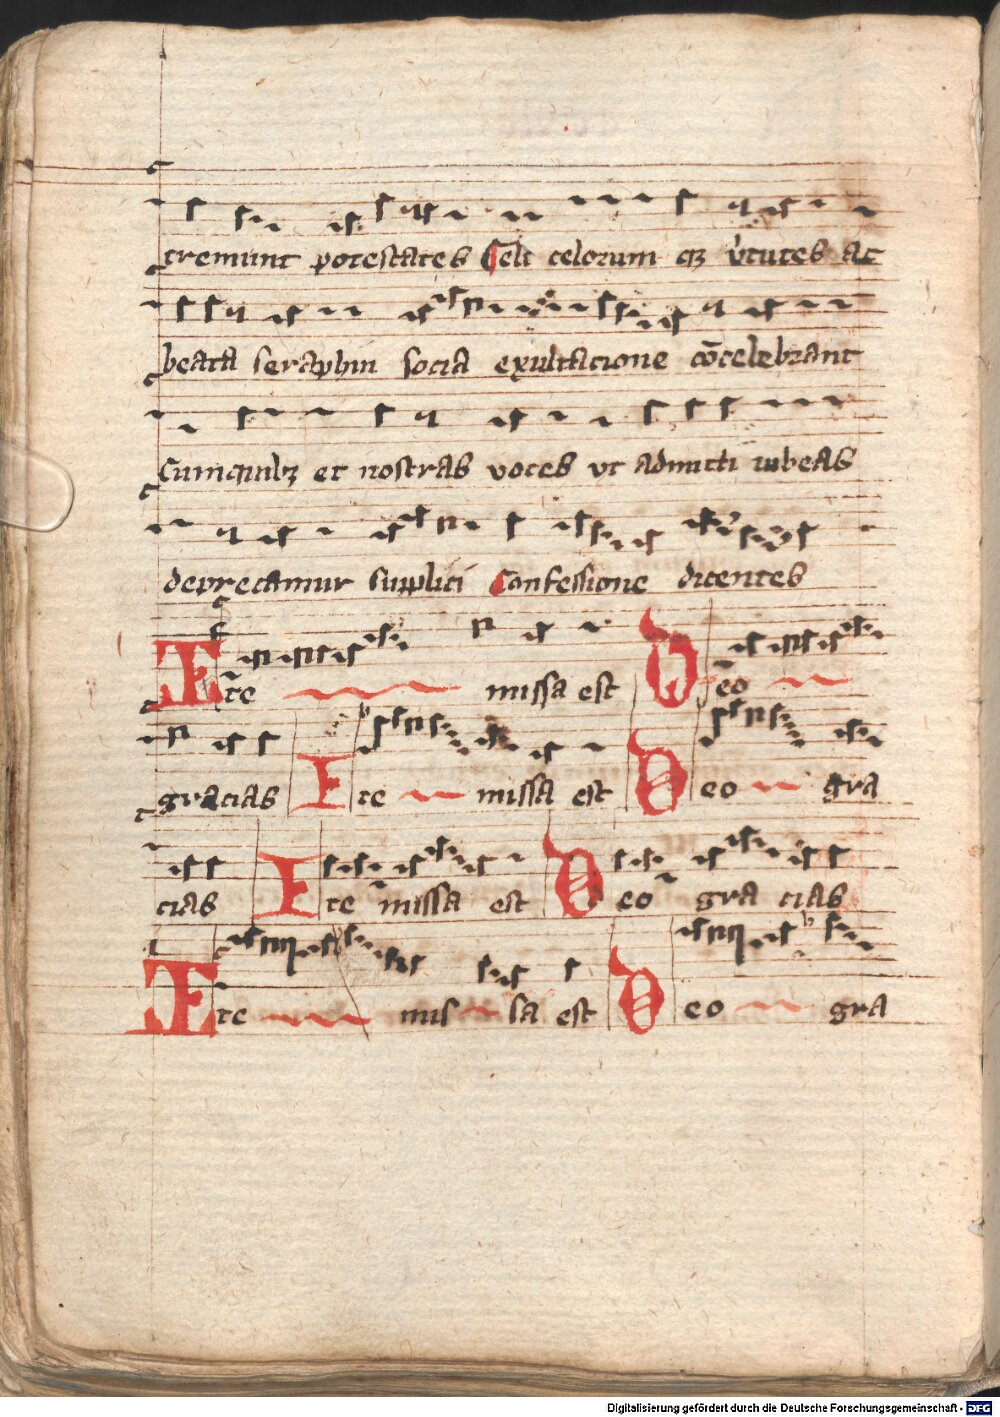 tremunt potestates Celi celorum qȝ v̉tutes ac
beata seraphin socia exultacione cōcelebrant
Cum quibȝ et nostras voces vt admitti iubeas
deprecamur supplici Confessione dicentes
Ite missa est Deo
gracias Ite missa est Deo gra
cias Ite missa est Deo gra cias
Ite mis sa est Deo gra
Digitalisierung gefördert durch die Deutsche Forschungsgemeinschaft - DFG